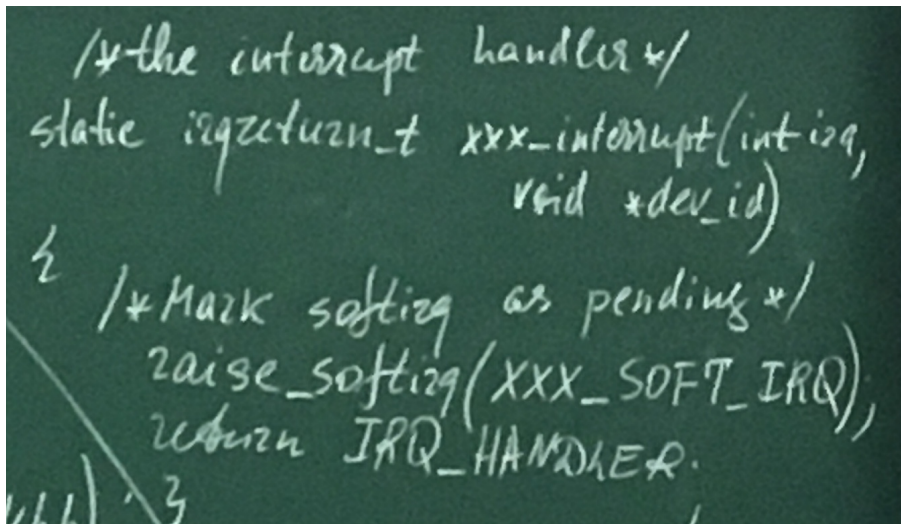 /*the interrupt handler*/
static irqreturn_t xxx_interrupt(int irq,
void *dev_id)
{
/*Mark softirq as pending*/
raise_softirq(XXX_SOFT_IRQ);
return IRQ_HANDLER.
}